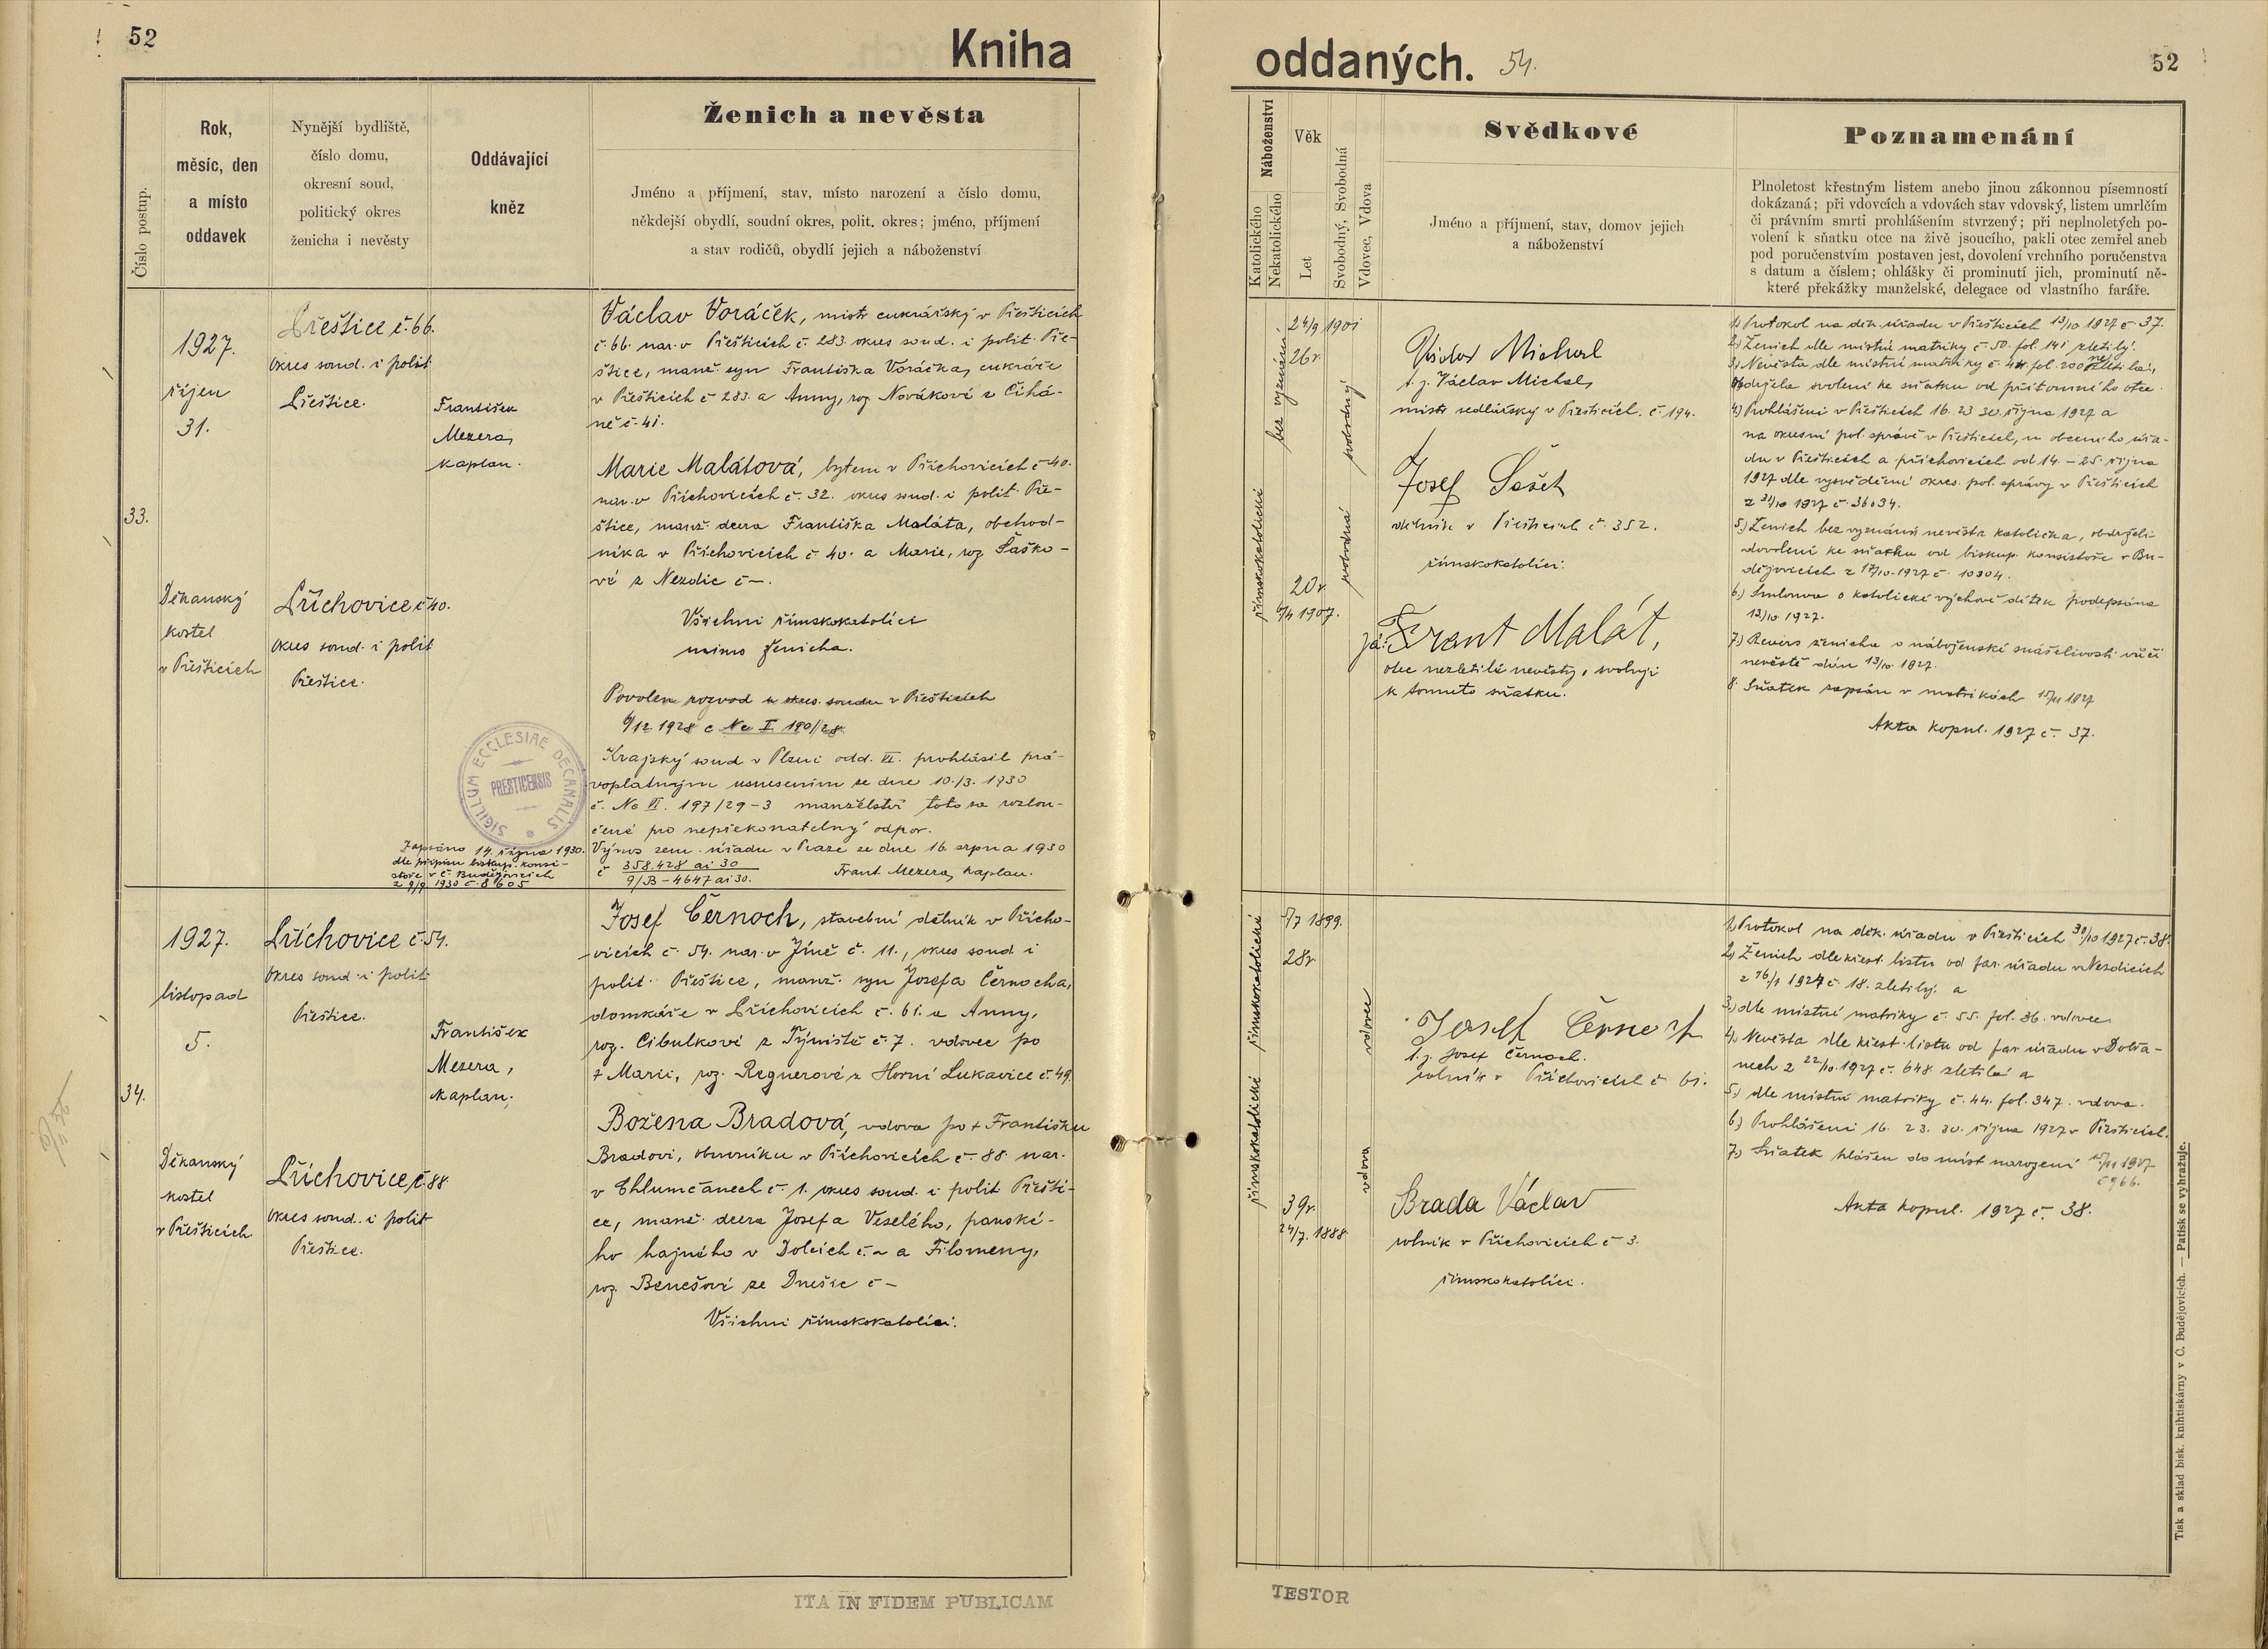 52
Kniha
Číslo postup.
Rok,
měsíc, den
a místo
oddavek
Nynější bydliště,
číslo domu,
okresní soud,
politický okres
ženicha i nevěsty
Oddávající
kněz
Ženich a nevěsta
Jméno a příjmení, stav, místo narození a číslo domu,
někdejší obydlí, soudní okres, polit. okres; jméno, příjmení
a stav rodičů, obydlí jejich a náboženství
33.
1927.
říjen
31.
Děkanský
kostel
v Přešticích
Přeštice č. 66.
okres soud. i polit
Přeštice.
Příchovice č 40.
okres soud. i polit
Přeštice.
František
Mezera,
kaplan.
Václav Voráček, mistr cukrářský v Přešticích
č. 66. nar. v Přešticích č. 283. okres soud. i polit. Pře-
štice, manž. syn Františka Voráčka, cukráře
v Přešticích č 283. a Anny, roz. Novákové z Čihá-
ně č. 41.
Marie Malátová, bytem v Příchovicích č 40.
nar. v Příchovicích č. 32. okres soud. i polit. Pře-
štice, manž. dcera Františka Maláta, obchod-
níka v Příchovicích č 40. a Marie, roz. Šaško-
vé z Nezdic č –.
Všichni římskokatolíci
mimo ženicha.
Povolen rozvod u okres. soudu v Přešticích
6/12 1928 č Nc I 190/28.
Krajský soud v Plzni odd. VI. prohlásil prá-
voplatným usnesením ze dne 10./3. 1930
č. Nc VI. 197/29-3 manželství toto za rozlou-
čené pro nepřekonatelný odpor.
Výnos zem. úřadu v Praze ze dne 16. srpna 1930
č 358.428 ai 30
9/B-4647 ai 30.
Frant Mezera, kaplan.
SIGILLUM ECCLESIAE DECANALIS
PRESTICENSIS
Zapsáno 14. října 1930.
dle přípisu biskup. konsi-
stoře v Č. Budějovicích
z 9/9 1930 č. 8605
34.
1927.
listopad
5.
Děkanský
kostel
v Přešticích.
Příchovice č. 54.
okres soud. i polit
Přeštice.
Příchovice č. 88
okres soud. i polit
Přeštice.
František
Mezera,
kaplan.
Josef Černoch, stavební dělník v Přícho-
vicích č. 54. nar. v Jíně č. 11., okres soud. i
polit. Přeštice, manž. syn Josefa Černocha,
domkáře v Příchovicích č. 61. a Anny,
roz. Cibulkové z Týniště č 7. vdovec po
+ Marii, roz. Regnerové z Horní Lukavice č. 49.
Božena Bradová, vdova po + Františku
Bradovi, obuvníku v Příchovicích č. 88 nar.
v Chlumčanech č. 1. okres soud. i polit Přešti-
ce, manž. dcera Josefa Veselého, panské-
ho hajného v Dolcích č. – a Filomeny,
roz. Benešové ze Dnešic č –
Všichni římskokatolíci.
ITA IN FIDEM PUBLICAM
oddaných.
54.
52
Náboženství
Katolického
Nekatolického
Věk
Let
Svobodný, Svobodná
Vdovec, Vdova
Svědkové
Jméno a příjmení, stav, domov jejich
a náboženství
Poznamenání
Plnoletost křestným listem anebo jinou zákonnou písemností
dokázaná; při vdovcích a vdovách stav vdovský, listem umrlčím
či právním smrti prohlášením stvrzený; při neplnoletých po-
volení k sňatku otce na živě jsoucího, pakli otec zemřel aneb
pod poručenstvím postaven jest, dovolení vrchního poručenstva
s datum a číslem; ohlášky či prominutí jich, prominutí ně-
které překážky manželské, delegace od vlastního faráře.
bez vyznání
římskokatolické
24/9 1901
26 r.
20 r.
6/4 1907.
svobodný
svobodná
Václav Michal
t. j. Václav Michal,
mistr sedlářský v Přešticích. č. 194.
Josef
dělník v Přešticích č. 352.
římskokatolíci.
já: Frant Malát,
otec nezletilé nevěsty, svoluji
k tomuto sňatku.
1) Protokol na děk. úřadu v Přešticích 13/10 1927 č. 37.
2) Ženich dle místní matriky č. 50. fol. 141 zletilý.
3) Nevěsta dle místní matriky č. 44. fol. 200 nezletilá,
obdržela svolení ke sňatku od přítomného otce.
4) Prohlášeni v Přešticích 16. 23 30. října 1927 a
na okresní pol. správě v Přešticích, u obecního úřa-
du v Přešticích a Příchovicích od 14. – 25. října
1927 dle vysvědčení okres. pol. správy v Přešticích
z 31/10 1927 č. 36034.
5.) Ženich bez vyznání, nevěsta katolička, obdrželi
dovolení ke sňatku od biskup. konsistoře v Bu-
dějovicích z 17/10. 1927 č. 10304.
6.) Smlouva o katolické výchově dítek podepsána
13/10 1927.
7.) Revers ženicha o náboženské snášelivosti vůči
nevěstě dán 13/10 1927.
8. Sňatek zapsán v matrikách 15/11 1927
Akta kopul. 1927 č. 37.
římskokatolické
římskokatolické
5/7 1899.
28 r.
39 r.
24/7. 1888
vdovec
vdova
Josef Černoch
t. j. Josef Černoch.
rolník v Příchovicích č 61.
Brada Václav
rolník v Příchovicích č 3.
římskokatolíci.
1.) Protokol na děk. úřadu v Přešticích 30/10 1927 č. 38.
2.) Ženich dle křest. listu od far. úřadu v Nezdicích
z 16/1 1924 č. 18. zletilý. a
3.) dle místní matriky č. 55. fol. 36. vdovec.
4.) Nevěsta dle křest. listu od far. úřadu v Dobřa-
nech z 22/10. 1927 č. 648 zletilá a
5.) dle místní matriky č. 44. fol. 347. vdova.
6.) Prohlášeni 16. 23. 30. října 1927 v Přešticích.
7.) Sňatek hlášen do míst narození 15/11 1927
č 966.
Akta kopul. 1927 č. 38.
Tisk a sklad bisk. knihtiskárny v Č. Budějovicích. — Patisk se vyhražuje.
TESTOR